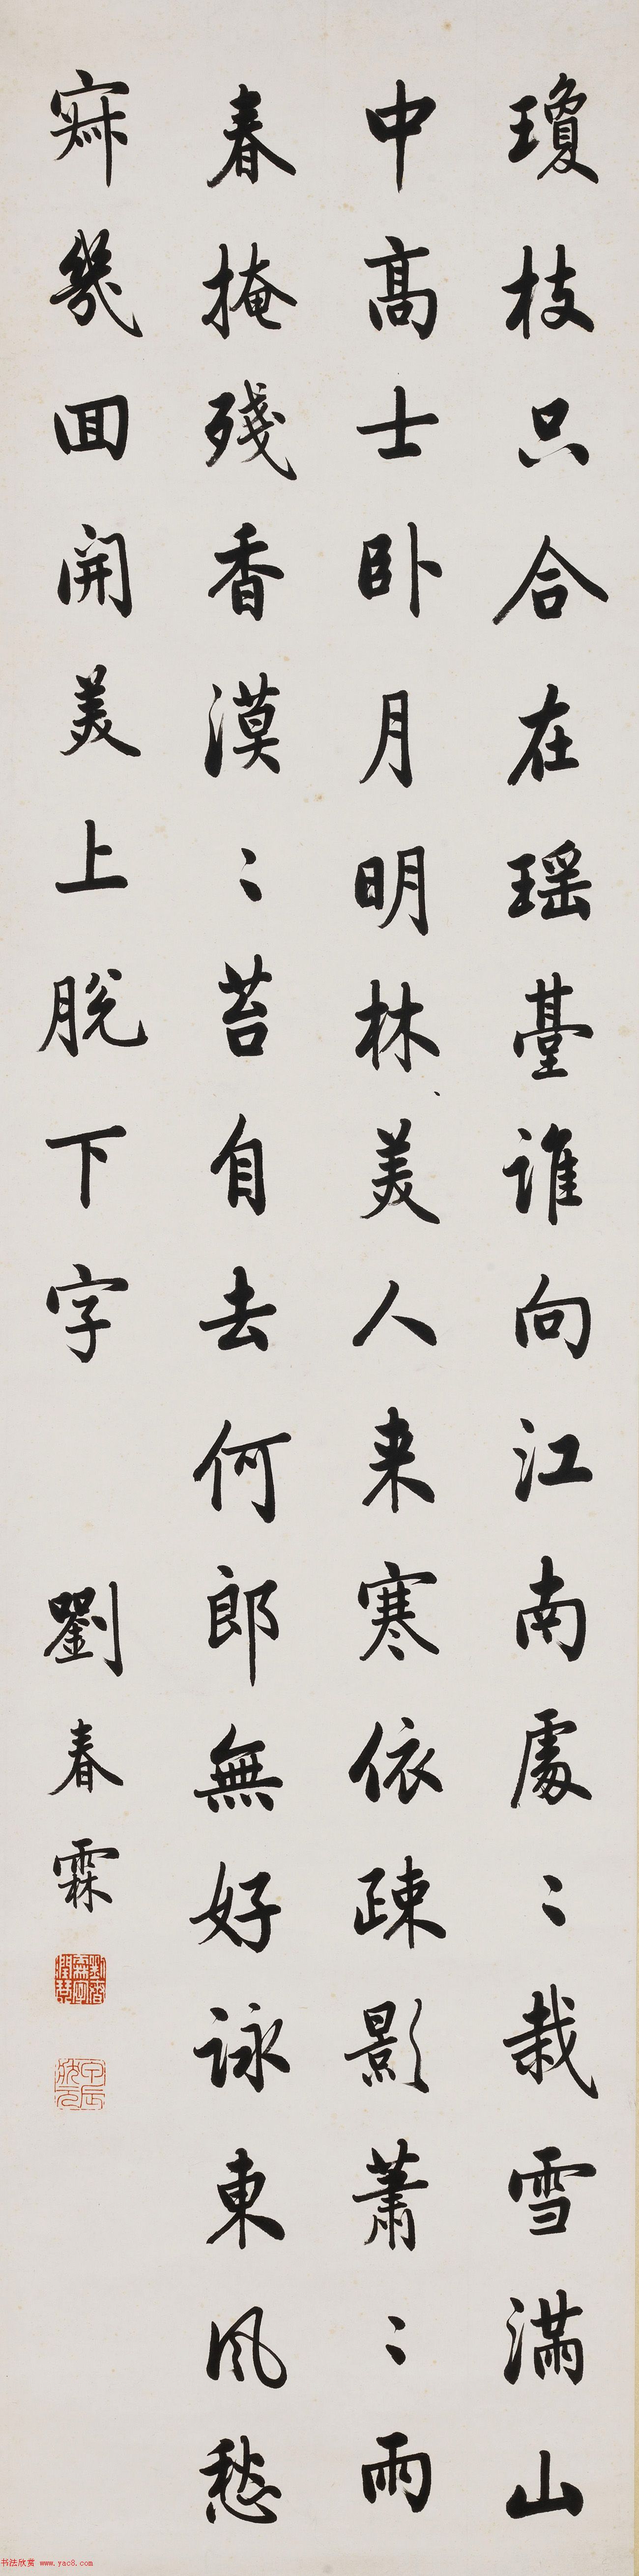 瓊枝只合在瑶臺誰向江南處〻栽雪滿山
中高士卧月明林、美人来寒依疎影蕭〻雨
春掩殘香漠〻苔自去何郎無好詠東風愁
寂幾囬開美上脱下字
劉春霖
甲辰狀元
书法欣赏 www.yac8.com